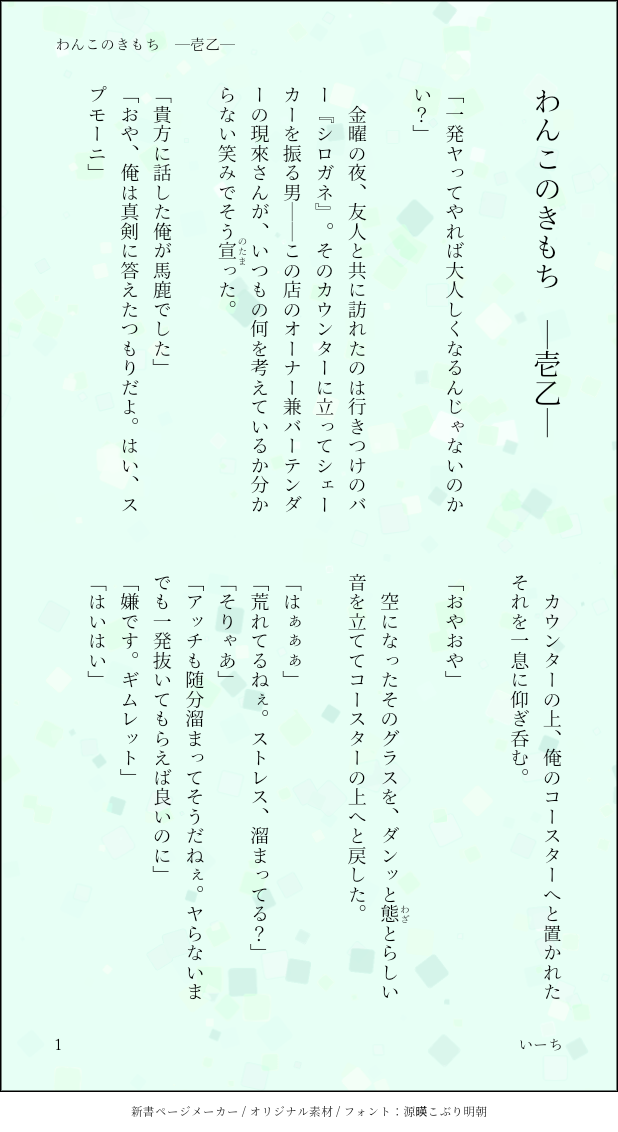 わんこのきもち　―壱乙―
わんこのきもち　―壱乙―
「一発ヤってやれば大人しくなるんじゃないのか
い？」
　金曜の夜、友人と共に訪れたのは行きつけのバ
ー『シロガネ』。そのカウンターに立ってシェー
カーを振る男――この店のオーナー兼バーテンダ
ーの現來さんが、いつもの何を考えているか分か
らない笑みでそう宣った。
のたま
「貴方に話した俺が馬鹿でした」
「おや、俺は真剣に答えたつもりだよ。はい、ス
プモーニ」
　カウンターの上、俺のコースターへと置かれた
それを一息に仰ぎ呑む。
「おやおや」
　空になったそのグラスを、ダンッと態とらしい
わざ
音を立ててコースターの上へと戻した。
「はぁぁぁ」
「荒れてるねぇ。ストレス、溜まってる？」
「そりゃあ」
「アッチも随分溜まってそうだねぇ。ヤらないま
でも一発抜いてもらえば良いのに」
「嫌です。ギムレット」
「はいはい」
1
いーち
新書ページメーカー / オリジナル素材 / フォント：源暎こぶり明朝